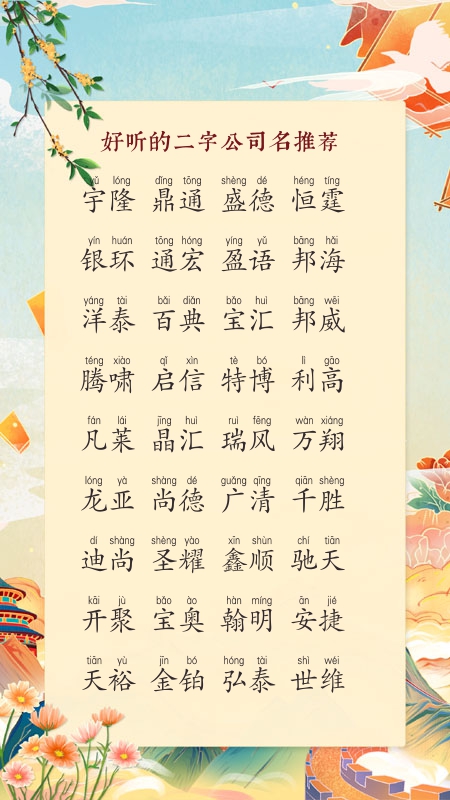 好听的二字公司名推荐
yǔ lóng dǐng tōng shèng dé héng tíng
宇隆 鼎通 盛德 恒霆
yín huán tōng hóng yíng yǔ bāng hǎi
银环 通宏 盈语 邦海
yáng tài bǎi diǎn bǎo huì bāng wēi
洋泰 百典 宝汇 邦威
téng xiào qǐ xìn tè bó lì gāo
腾啸 启信 特博 利高
fán lái jīng huì ruì fēng wàn xiáng
凡莱 晶汇 瑞风 万翔
lóng yà shàng dé guǎng qīng qiān shèng
龙亚 尚德 广清 千胜
dí shàng shèng yào xīn shùn chí tiān
迪尚 圣耀 鑫顺 驰天
kāi jù bǎo ào hàn míng ān jié
开聚 宝奥 翰明 安捷
tiān yù jīn bó hóng tài shì wéi
天裕 金铂 弘泰 世维